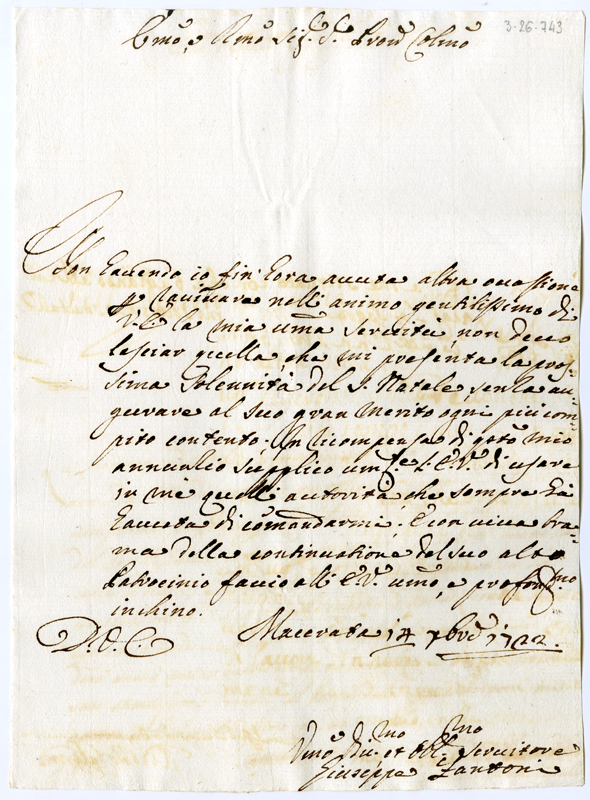 3-26-743
Emõ, e Rmõ Sig.r S.r Pron Colmõ
Non havendo io fin' hora avuta altra occasione
p ravvivare nelli animo gentilissimo di
V.E. la mia umã servitù, non devo
lasciar quella, che mi presenta la pros-
sima Solennità del S. Natale, senza au-
gurare al suo gran merito ogni più com-
pito contento. In ricompensa di qstõ mio
annuncio supplico um.te l'E.V. di usare
in me quelli autorità, che sempre hà
havuta di comandarmi. E con viva bra-
ma della continuatione del suo alto
Patrocinio faccio all' E.V. umõ, e profon.mo
inchino.
D. V. E. Macerata 14 Xbrê 1722.
Umõ Div.mo et Obl.mo Servitore
Giuseppe Zantoni